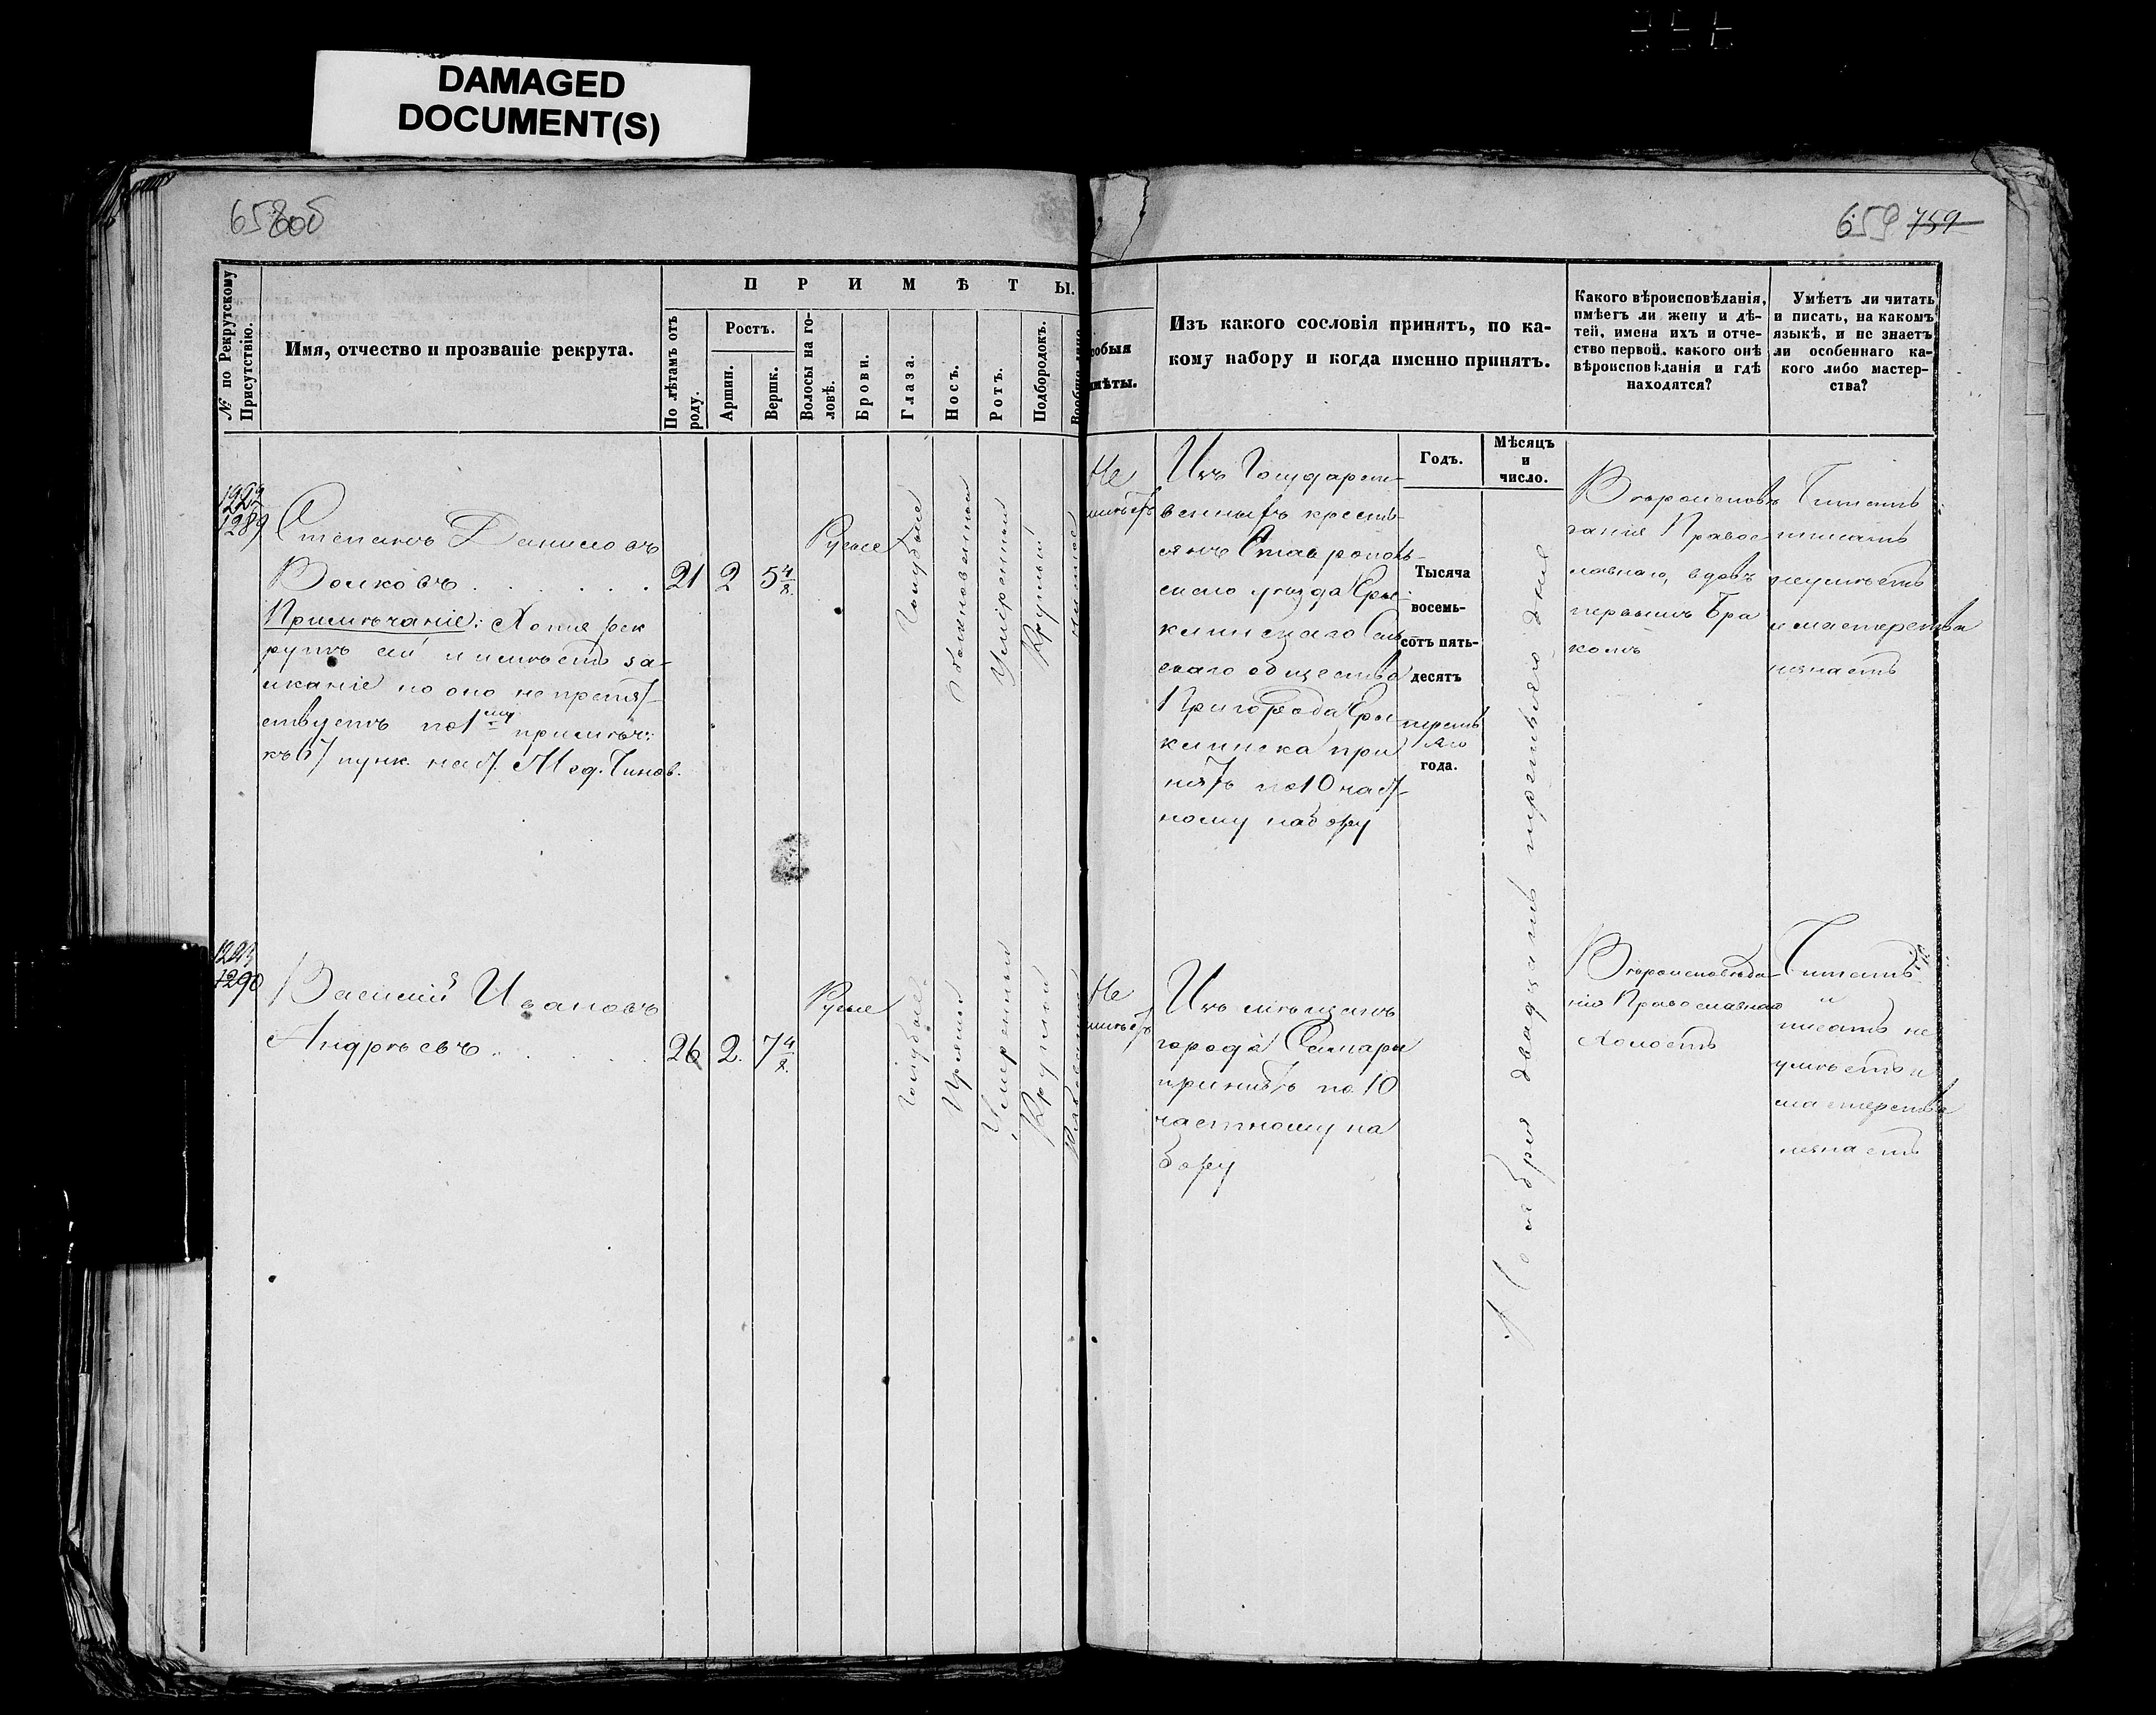 DAMAGED
DOCUMENT(S)
658об
659 759
№ по Рекрутскому
Присутствію.
Имя, отчество и прозваніе рекрута.
ПРИМѢТЫ.
По лѣтамъ отъ
роду.
Ростъ.
Аршин.
Вершк.
Волосы на го-
ловѣ.
Брови.
Глаза.
Носъ.
Ротъ.
Подбородокъ.
Изъ какого сословія принятъ, по ка-
кому набору и когда именно принятъ.
Какого вѣроисповѣданія,
имѣетъ ли жену и дѣ-
тей, имена ихъ и отче-
ство первой, какого онѣ
вѣроисповѣданія и гдѣ
находятся?
Умѣетъ ли читать
и писать, на какомъ
языкѣ, и не знаетъ
ли особеннаго ка-
кого либо мастер-
ства?
Годъ.
Мѣсяцъ
и
число.
1289
Степанъ Даниловъ
Волковъ
Примѣчаніе: Хотя рек
рутъ сей и имѣетъ за-
иканіе но оно не препят-
ствуетъ по 1му примѣч:
къ 67 пунк. наст. Мед. Чинов.
21 2 5 4/8.
Русые
Голубые
Обыкновенный
Умѣренный
Круглый
Чистое
Не
имѣетъ
Изъ Государст-
венныхъ кресть-
янъ Ставрополь-
скаго уѣзда Еры-
клинскаго Сель-
скаго общества
Пригорода Еры-
клинска при
нятъ по 10 част-
ному набору
Тысяча
восемь-
сотъ пять-
десятъ
третьяго
года.
Ноября двадцать третьяго дня
Вѣроисповѣ
данія Правос
лавнаго, вдовъ
первымъ бра
комъ
Читать
писать
неумѣетъ
и мастерства
незнаетъ
1290
Василій Ивановъ
Андреевъ
26 2. 7 4/8.
Русые
Голубые
Прямой
Умѣренный
Круглый
Не
имѣетъ
Изъ мѣщанъ
города Самары
принятъ по 10
частному на
бору
Вѣроисповѣда-
нія Православнаго
Холостъ
Читать
и
писать не
умѣетъ и
мастерства
незнаетъ